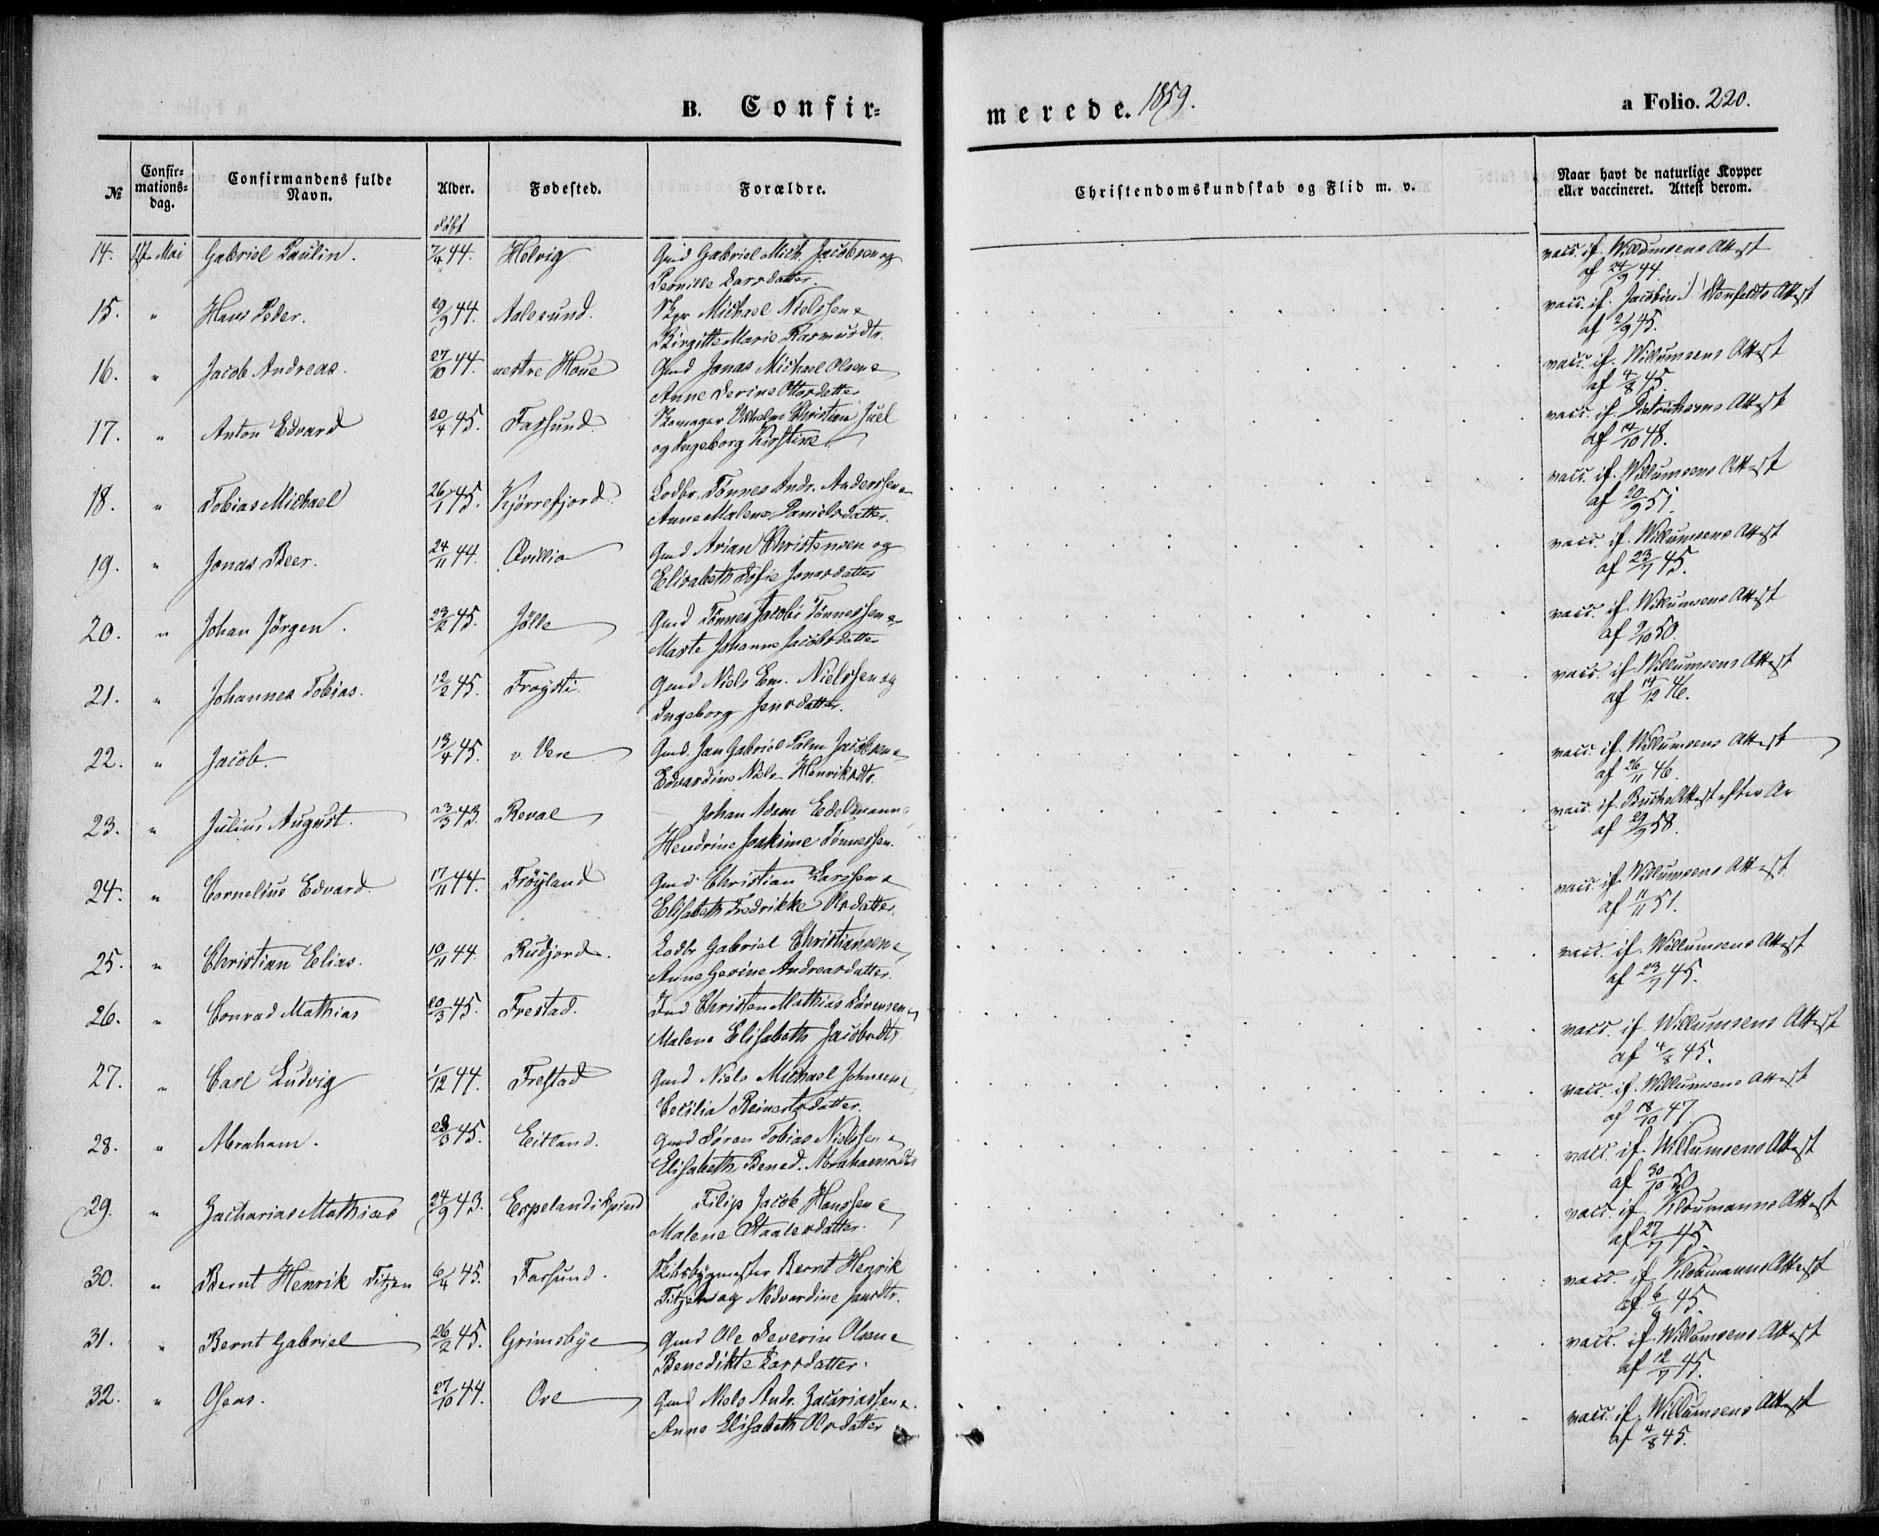 B. Confir-
merede. 1859.
a Folio. 220.
№
Confir-
mations-
dag.
Confirmandens fulde
Navn.
Alder.
døbt
Fødested.
Forældre.
Christendomskundskab og Flid m. v.
Naar havt de naturlige Kopper
eller vaccineret. Attest derom.
14. Mai Gabriel Paulin. 7/4 44. Helvig Gmd Gabriel Mich. Jacobsen og vacc. if. Willumsens Attest
Pernille Larsdatter. af 24/9 44
15. " Hans Peder. 29/9 44. Aalesund. Skpr Michael Nielssen & vacc. if. Jacobine Attest
Birgitte Marie Rasmusdtr. af 2/9 45.
16. " Jacob Andreas. 27/10 44. vestre Houe Gmd Jonas Michael Olsen & vacc. if. Willumsens Attest
Anne Severine Ottersdatter af 4/8 45.
17. " Anton Edvard 20/4 45. Farsund. Christian Juel vacc. if. Attest
og Ingeborg Kirstine af 14/10 48.
18. " Tobias Michael 26/1 45. Kjørrefjord. Lodbr. Tønnes Andr. Anderssen & vacc. if. Willumsens Attest
Anne Malene Danielsdatter. af 20/9 51.
19. " Jonas Beer. 24/11 44. Qvillia Gmd Arian Christensen og vacc. if. Willumsens Attest
Elisabeth Sofie Jonasdatter af 23/7 45.
20. " Johan Jörgen. 23/2 45. Jölle Gmd Tönnes Jacobs Tönnessen & vacc. if. Willumsens Attest
Marte Johanne Jacobsdatter af 2/10 50.
21. " Johannes Tobias. 12/2 45. Frøysti. Gmd Niels Em. Nielssen og vacc. if. Willumsens Attest
Ingeborg Jensdatter. af 14/12 46.
22. " Jacob. 13/4 45. v. Vere Gmd. Jan Gabriel Palm Jacobsen & vacc. if. Willumsens Attest
Edvardine Niels Henriksdtr. af 26/11 46.
23. " Julius August. 23/3 43. Reval Johan Adam Eedelmann & vacc. if. Buchs Attest efter Ar
Hendrine Joakime Tönnessen. af 29/9 58.
24. " Cornelius Edvard. 17/11 44. Fröyland Gmd. Christian Larssen & vacc. if. Willumsens Attest
Elisabeth Fredrikke Olsdatter. af 11/11 51.
25. " Christian Elias. 10/11 44 Rudjord. Lodbr Gabriel Christiansen & vacc. if. Willumsens Attest
Anne Gerine Andreasdatter. af 23/7 45.
26. " Conrad Mathias 20/3 45. Frestad. Ind Christen Mathias Sörensen & vacc. if. Willumsens Attest
Malene Elisabeth Jacobsdtr af 4/8 45.
27. " Carl Ludvig 1/12 44. Frestad Gmd Niels Michael Johnsen & vacc. if. Willumsens Attest
Cecilia Reinertsdatter. af 18/10 47.
28. " Abraham. 23/3 45. Eitland. Gmd Sören Tobias Nielssen & vacc. if. Willumsens Attest
Elisabeth Bened. Abrahamsdtr af 30/10 50
29. " Zacharias Mathias 24/9 43. Espeland i Spind Filip Jacob Hanssen & vacc. if. Kloumanns Attest
Malene Staalesdatter. af 27/7 45.
30. " Bernt Henrik Titzen 6/4 45. Farsund. Skibsbygmester Bernt Henrik vacc. if. Kloumanns Attest
Titzen og Nedvardine Jansdtr. af 6/9 45.
31. " Bernt Gabriel 26/2 45. Grimsbye Gmd Ole Severin Olsen & vacc. if. Willumsens Attest
Benedikte Larsdatter. af 12/7 45.
32. " Oseas. 27/10 44. Ore Gmd Niels Andr. Zacariassen & vacc. if. Willumsens Attest
Anne Elisabeth Olsdatter af 4/8 45.